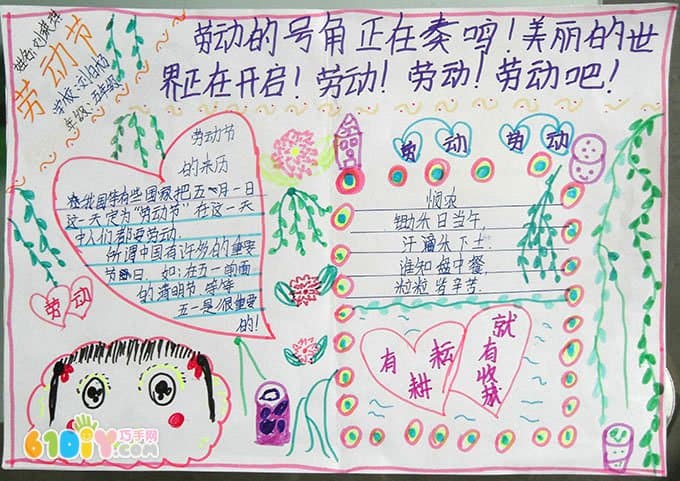 姓名:刘
劳动节
学校:刘
年级:五年级
劳动的号角正在奏鸣!美丽的世
界正在开启!劳动!劳动!劳动吧!
劳动节
的来历
在我国等有些国家把五月一日
这一天定为"劳动节"在这一天
中人们都要劳动.
所谓中国有许多的重要
节日.如:在五一前面
的清明节等等
五一是很重要
的!
劳动
劳动
劳动
悯农
锄禾日当午,
汗滴禾下土.
谁知盘中餐,
粒粒皆辛苦.
有耕耘
就有收获
61DIY巧手网
.com